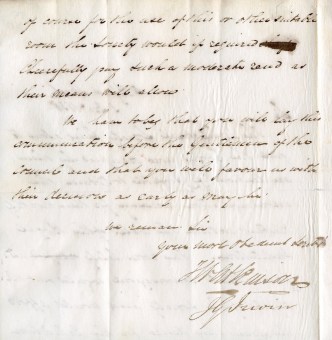 of course for the use of this or other suitable
room the Society would if required
cheerfully pay such a moderate as
their means will allow
We have to beg that you will lay this
communication before the Gentlemen of the
Council and that you will favour us with
their decision as early as may be
We remain Sir
Your most obedient
J G Irwin